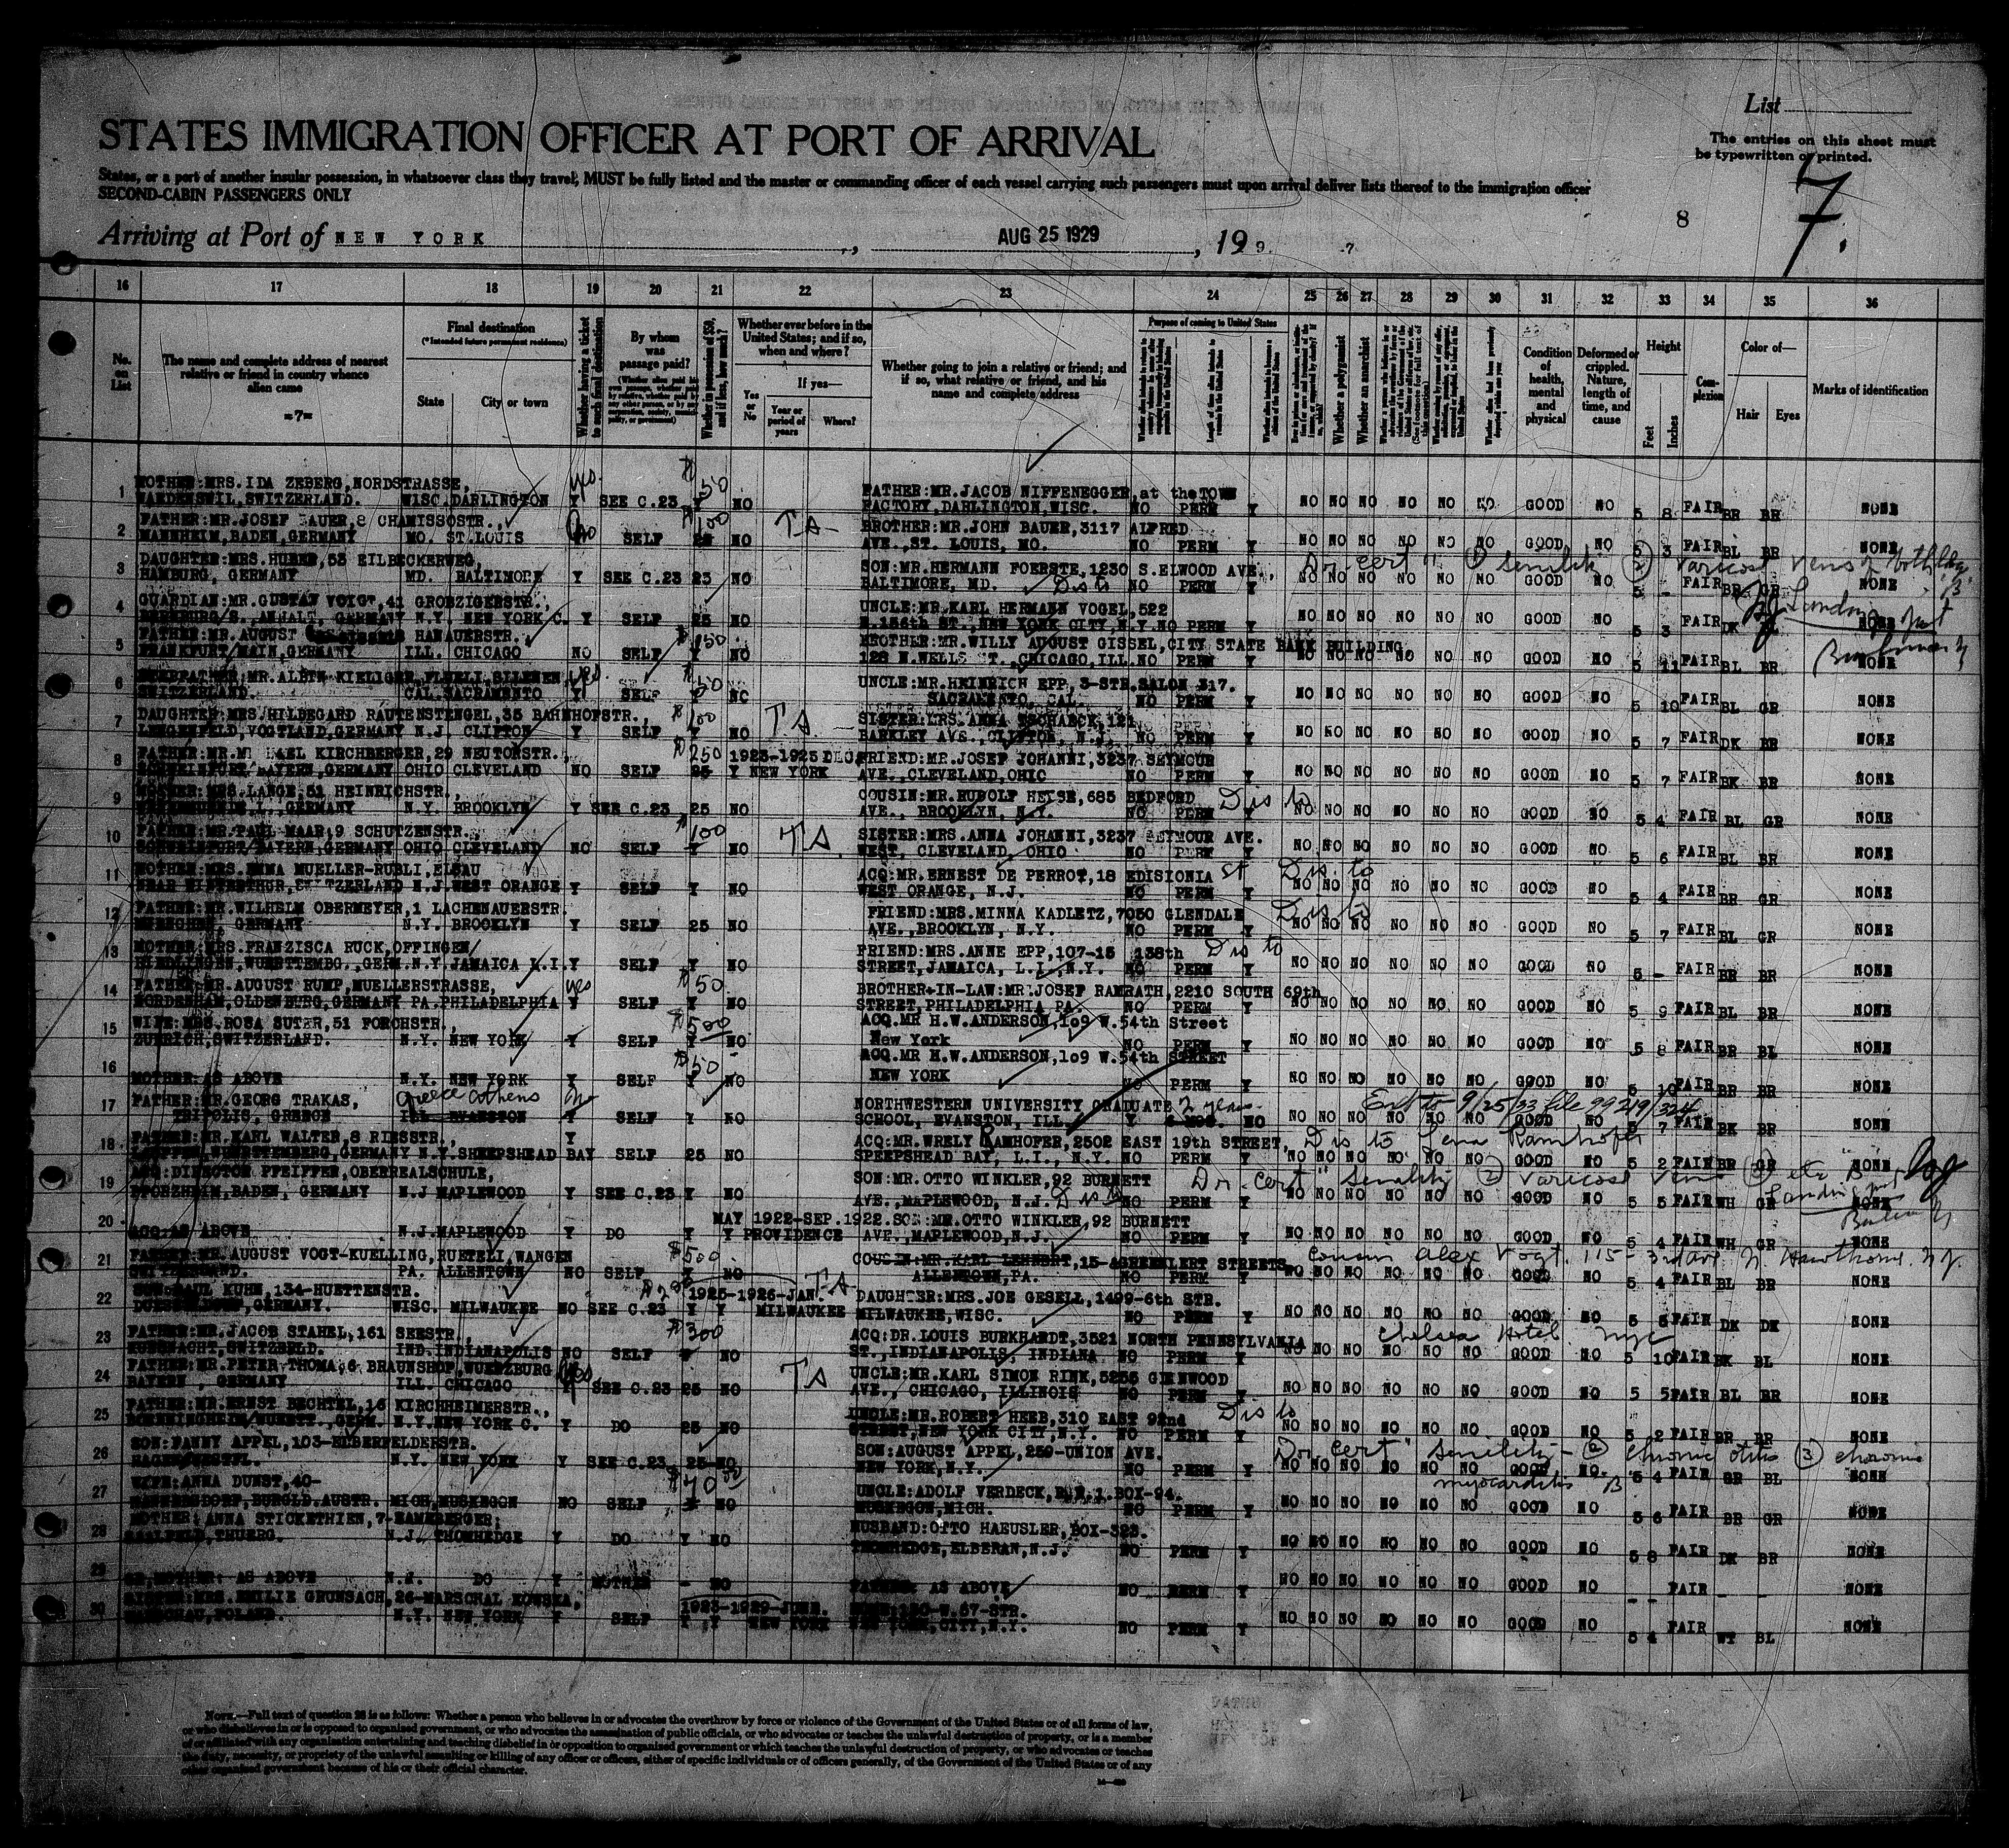 List
STATES IMMIGRATION OFFICER AT PORT OF ARRIVAL
The entries on this sheet must
be typewritten or printed.
States, or a port of another insular possession, in whatsoever class they travel, MUST be fully listed and the master or commanding officer of each vessel carrying such passengers must upon arrival deliver lists thereof to the immigration officer
SECOND-CABIN PASSENGERS ONLY
8 7.
Arriving at Port of NEW YORK, AUG 25 1929, 19 9. 7
16 17 18 19 20 21 22 23 24 25 26 27 28 29 30 31 32 33 34 35 36
No. on List
The name and complete address of nearest relative or friend in country whence alien came
=7=
Final destination
(*Intended future permanent residence)
State City or town
Whether having a ticket to such final destination
By whom was passage paid?
Whether in possession of $50, and if less, how much?
Whether ever before in the United States; and if so, when and where?
Yes or No
If yes—
Year or period of years
Where?
Whether going to join a relative or friend; and if so, what relative or friend, and his name and complete address
Purpose of coming to United States
Whether a polygamist
Whether an anarchist
Condition of health, mental and physical
Deformed or crippled. Nature, length of time, and cause
Height
Feet Inches
Complexion
Color of—
Hair Eyes
Marks of identification
1 MOTHER:MRS.IDA ZEBERG,NORDSTRASSE, yes $50 FATHER:MR.JACOB NIFFENEGGER,at the TOWN
WAEDENSWIL,SWITZERLAND. WISC.DARLINGTON Y SEE C.23 Y NO FACTORY,DARLINGTON,WISC. NO PERM Y NO NO NO NO NO NO GOOD NO 5 8 FAIR BR BR NONE
2 FATHER:MR.JOSEF BAUER,8 CHAMISSOSTR., $100 TA BROTHER:MR.JOHN BAUER,3117 ALFRED
MANNHEIM,BADEN,GERMANY MO. ST.LOUIS No SELF 25 NO AVE.,ST. LOUIS, MO. NO PERM Y NO NO NO NO NO NO GOOD NO 5 3 FAIR BL BR NONE
3 DAUGHTER:MRS.HUEBE,53 EILBECKERWEG, SON:MR.HERMANN FOERSTE,1230 S.ELWOOD AVE., Dr. cert " ① senility ② varicose veins of both legs
HAMBURG, GERMANY MD. BALTIMORE Y SEE C.23 25 NO BALTIMORE, MD. Dis to NO PERM Y NO NO NO NO NO NO GOOD NO 5 - FAIR BR GR NONE
4 GUARDIAN:MR.GUSTAV VOIGT,41 GROBZIGERSTR., UNCLE:MR.KARL HERMANN VOGEL,522 Landing
BERNBURG/S.,ANHALT, GERMANY N.Y. NEW YORK C. Y SELF 25 NO W.156th ST.,NEW YORK CITY,N.Y. NO PERM Y NO NO NO NO NO NO GOOD NO 5 3 FAIR DK BL NONE
5 FATHER:MR.AUGUST HANAUERSTR., $150 BROTHER:MR.WILLY AUGUST GISSEL,CITY STATE BANK BUILDING
FRANKFURT/MAIN,GERMANY ILL. CHICAGO NO SELF Y NO 128 N.WELLS ST.,CHICAGO,ILL. NO PERM Y NO NO NO NO NO NO GOOD NO 5 11 FAIR BL BR NONE
6 STEPFATHER:MR.ALBIN KIELIGER,FLUELI,SILENEN, yes $50 UNCLE:MR.HEINRICH EPP,3-STR.SALON 317.
SWITZERLAND. CAL.SACRAMENTO Y SELF Y NO SACRAMENTO, CAL. NO PERM Y NO NO NO NO NO NO GOOD NO 5 10 FAIR BL GR NONE
7 DAUGHTER:MRS.HILDEGARD RAUTENSTENGEL,35 BAHNHOFSTR., $100 TA SISTER:MRS.ANNA TSCHAECK,121
LENGENFELD,VOGTLAND,GERMANY N.J. CLIFTON Y SELF Y NO BARKLEY AVE.,CLIFTON, N.J. NO PERM Y NO NO NO NO NO NO GOOD NO 5 7 FAIR DK BR NONE
8 FATHER:MR.MICHAEL KIRCHBERGER,29 NEUTORSTR., $250 1923-1925 DEC. FRIEND:MR.JOSEF JOHANNI,3237 SEYMOUR
SCHWEINFURT,BAYERN,GERMANY OHIO CLEVELAND NO SELF 25 Y NEW YORK AVE.,CLEVELAND,OHIO NO PERM Y NO NO NO NO NO NO GOOD NO 5 7 FAIR BK BR NONE
9 MOTHER:MRS.LANGE,51 HEINRICHSTR., COUSIN:MR.RUDOLF HEISE,685 BEDFORD Dis to
GERMANY N.Y. BROOKLYN Y SEE C.23 25 NO AVE., BROOKLYN, N.Y. NO PERM Y NO NO NO NO NO NO GOOD NO 5 4 FAIR BL GR NONE
10 FATHER:MR.PAUL MAAR,9 SCHUTZENSTR., $100 TA SISTER:MRS.ANNA JOHANNI,3237 SEYMOUR AVE.
SCHWEINFURT/BAYERN,GERMANY OHIO CLEVELAND NO SELF Y NO WEST, CLEVELAND, OHIO NO PERM Y NO NO NO NO NO NO GOOD NO 5 6 FAIR BL BR NONE
11 MOTHER:MRS.EMMA MUELLER-RUBLI,ELSAU ACQ:MR.ERNEST DE PERROT,18 EDISIONIA st Dis to
NEAR WINTERTHUR,SWITZERLAND N.J.WEST ORANGE Y SELF Y NO WEST ORANGE, N.J. NO PERM Y NO NO NO NO NO NO GOOD NO 5 4 FAIR BR GR NONE
12 FATHER:MR.WILHELM OBERMEYER,1 LACHENAUERSTR. FRIEND:MRS.MINNA KADLETZ,7050 GLENDALE Dis to
MUENCHEN, GERMANY N.Y. BROOKLYN Y SELF 25 NO AVE.,BROOKLYN, N.Y. NO PERM Y NO NO NO NO NO NO GOOD NO 5 7 FAIR BL GR NONE
13 MOTHER:MRS.FRANZISCA RUCK,OFFINGEN/ FRIEND:MRS.ANNE EPP,107-15 138th Dis to
RIEDLINGEN,WUERTTEMBG.,GERM.N.Y.JAMAICA L.I. Y SELF Y NO STREET,JAMAICA, L.I.,N.Y. NO PERM Y NO NO NO NO NO NO GOOD NO 5 - FAIR BR BR NONE
14 FATHER:MR.AUGUST RUMP,MUELLERSTRASSE, yes $50 BROTHER-IN-LAW:MR.JOSEF RAMRATH,2210 SOUTH 69th
NORDENHAM,OLDENBURG,GERMANY PA.PHILADELPHIA Y SELF Y NO STREET,PHILADELPHIA PA. NO PERM Y NO NO NO NO NO NO GOOD NO 5 9 FAIR BL BR NONE
15 WIFE:MRS.ROSA SUTER,51 FORCHSTR., $500 ACQ.MR H.W.ANDERSON,1o9 W.54th Street
ZUERICH,SWITZERLAND. N.Y. NEW YORK Y SELF Y NO New York NO PERM Y NO NO NO NO NO NO GOOD NO 5 8 FAIR BR BL NONE
16 $50 ACQ.MR H.W.ANDERSON,1o9 W.54th STREET
MOTHER:AS ABOVE N.Y. NEW YORK Y SELF Y NO NEW YORK NO PERM Y NO NO NO NO NO NO GOOD NO 5 10 FAIR BR BR NONE
17 FATHER:MR.GEORG TRAKAS, Greece Athens No NORTHWESTERN UNIVERSITY GRADUATE 2 years Ext to 9/25/33 file 99219/324
TRIPOLIS, GREECE ILL EVANSTON Y SELF Y NO SCHOOL, EVANSTON, ILL. Y 6 MOS. NO NO NO NO NO NO NO GOOD NO 5 7 FAIR BK BR NONE
18 FATHER:MR.KARL WALTER,8 RIESSTR., Y ACQ:MR.WRELY RAMHOFER,2502 EAST 19th STREET, Dis to Lena Ramhofer
LAUFFEN,WUERTTEMBERG,GERMANY N.Y.SHEEPSHEAD BAY SELF 25 NO SPEEPSHEAD BAY, L.I., N.Y. NO PERM Y NO NO NO NO NO NO GOOD NO 5 2 FAIR BR GR NONE
19 ACQ:DIRECTOR PFEIFFER,OBERREALSCHULE, SON:MR.OTTO WINKLER,92 BURNETT Dr. cert " Senility ② varicose veins ③ etc "B"
PFORZHEIM,BADEN, GERMANY N.J MAPLEWOOD Y SEE C.23 Y NO AVE.,MAPLEWOOD, N.J. Dis to NO PERM Y NO NO NO NO NO NO GOOD NO 5 5 FAIR WH GR NONE
20 MAY 1922-SEP.1922.SON:MR.OTTO WINKLER,92 BURNETT
ACQ:AS ABOVE N.J.MAPLEWOOD Y DO Y Y PROVIDENCE AVE.,MAPLEWOOD,N.J. NO PERM Y NO NO NO NO NO NO GOOD NO 5 4 FAIR WH GR NONE
21 FATHER:MR.AUGUST VOGT-KUELLING,RUETELI,WANGEN $500 COUSIN:MR.KARL LEHNERT,15-AGREENLERT STREETS, cousin Alex Vogt. 115-3rd ave N. Hawthorne NJ.
SWITZERLAND. PA. ALLENTOWN NO SELF Y NO ALLENTOWN,PA. NO PERM Y NO NO NO NO NO NO GOOD NO 5 4 FAIR BL BR NONE
22 SON:PAUL KUHN,134-HUETTENSTR. 1925-1926-JAN. TA DAUGHTER:MRS.JOE GESELL,1499-6th STR.
DUESSELDORF,GERMANY. WISC. MILWAUKEE NO SEE C.23 Y Y MILWAUKEE MILWAUKEE,WISC. NO PERM Y NO NO NO NO NO NO GOOD NO 5 5 FAIR DK DK NONE
23 FATHER:MR.JACOB STAHEL,161 SEESTR., $300 ACQ:DR.LOUIS BURKHARDT,3521 NORTH PENNSYLVANIA Chelsea Hotel NYC
KUSSNACHT,SWITZERLD. IND.INDIANAPOLIS NO SELF NO ST.,INDIANAPOLIS, INDIANA NO PERM Y NO NO NO NO NO NO GOOD NO 5 10 FAIR BK BL NONE
24 FATHER:MR.PETER THOMA,6 BRAUNSHOF,WUERZBURG yes TA UNCLE:MR.KARL SIMON RINK,5255 GLENWOOD
BAYERN , GERMANY ILL. CHICAGO Y SEE C.23 25 NO AVE., CHICAGO, ILLINOIS NO PERM Y NO NO NO NO NO NO GOOD NO 5 5 FAIR BL BR NONE
25 FATHER:MR.ERNST BECHTEL,16 KIRCHHEIMERSTR., UNCLE:MR.ROBERT HEEB,310 EAST 92nd Dis to
BOENNINGHEIM/WUERTT.,GERM. N.Y.NEW YORK C. Y DO 25 NO STREET,NEW YORK CITY,N.Y. NO PERM Y NO NO NO NO NO NO GOOD NO 5 2 FAIR BR BR NONE
26 SON:FANNY APPEL,103-ELBERFELDERSTR. SON:AUGUST APPEL,259-UNION AVE. Dr. cert " Senility - ② chronic otitis ③ chronic
HAGEN/WESTFL. N.Y. NEW YORK Y SEE C.23 25 NO NEW YORK,N.Y. NO PERM Y NO NO NO NO NO NO GOOD NO 5 4 FAIR GR BL NONE
27 WIFE:ANNA DUNST,40- $40 UNCLE:ADOLF VERDECK,R.R.1.BOX-94. myocarditis - B
BURGLD.AUSTR. MICH.MUSKEGON NO SELF NO MUSKEGON,MICH. NO PERM Y NO NO NO NO NO NO GOOD NO 5 6 FAIR BR GR NONE
28 MOTHER: ANNA STICKETHIEN,7-HAMMBERGER; HUSBAND:OTTO HAEUSLER,BOX-322.
SAALFELD,THUERG. N.J. THOMHEDGE Y DO Y NO THOMHEDGE,ELBERAN,N.J. NO PERM Y NO NO NO NO NO NO GOOD NO 5 8 FAIR DK BR NONE
29 MOTHER: AS ABOVE N.J. DO Y MOTHER - NO FATHER: AS ABOVE NO PERM Y NO NO NO NO NO NO GOOD NO - - FAIR - - NONE
30 SISTER:MRS.EMILIE GRUNSACH,26-MARSCHAL KOWSKA, 1923-1929-JUNE. W.57-STR.
WARSCHAU,POLAND. N.Y. NEW YORK Y SELF Y Y NEW YORK NEW YORK,CITY,N.Y. NO PERM Y NO NO NO NO NO NO GOOD NO 5 4 FAIR WT BL NONE
NOTE.—Full text of question 28 is as follows: Whether a person who believes in or advocates the overthrow by force or violence of the Government of the United States or of all forms of law,
or who disbelieves in or is opposed to organized government, or who advocates the assassination of public officials, or who advocates or teaches the unlawful destruction of property, or is a member
of or affiliated with any organization entertaining and teaching disbelief in or opposition to organized government or which teaches the unlawful destruction of property, or who advocates or teaches
the duty, necessity, or propriety of the unlawful assaulting or killing of any officer or officers, either of specific individuals or of officers generally, of the Government of the United States or of any
other organized government because of his or their official character.